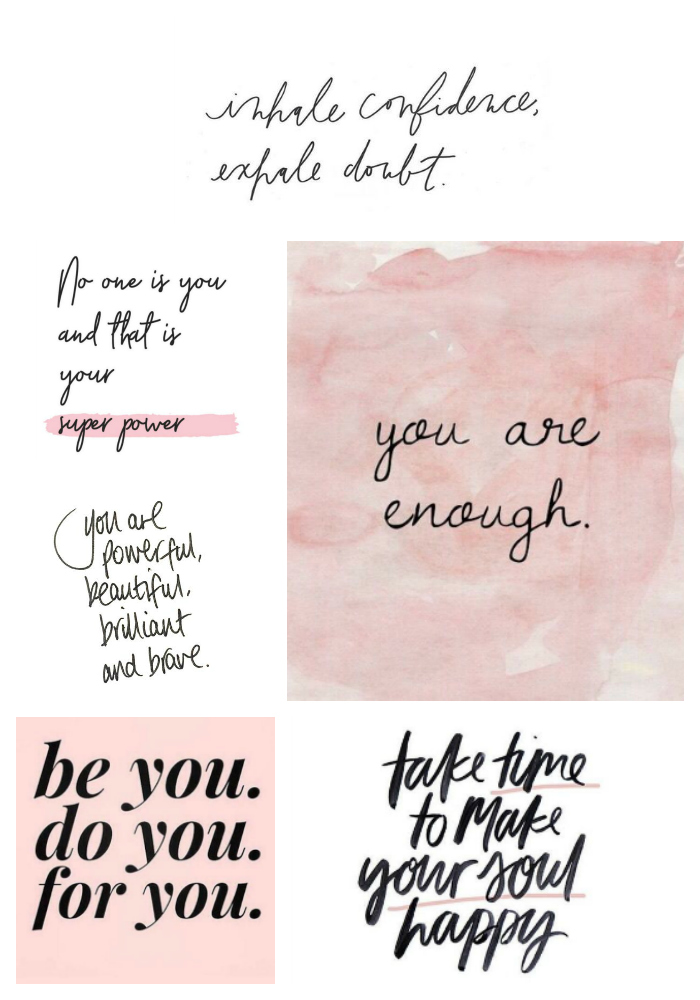 inhale confidence,
exhale doubt.
No one is you
and that is
your
super power
you are
enough.
you are
powerful,
beautiful,
brilliant
and brave.
be you.
do you.
for you.
take time
to make
your soul
happy